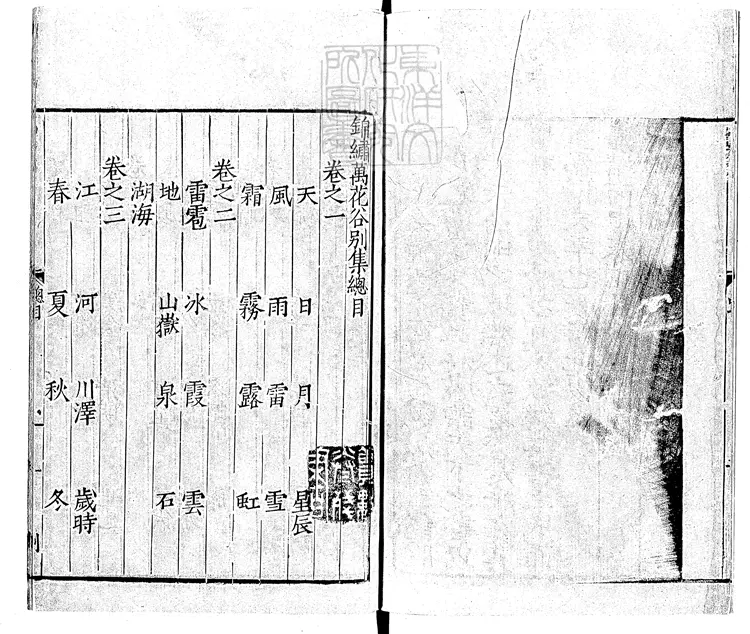 錦繡萬花谷別集總目
卷之一
天 日 月 星辰
風 雨 雷 雪
霜 霧 露 虹
卷之二
雷雹 冰 霞 雲
地 山嶽 泉 石
湖海
卷之三
江 河 川澤 歲時
春 夏 秋 冬
總目